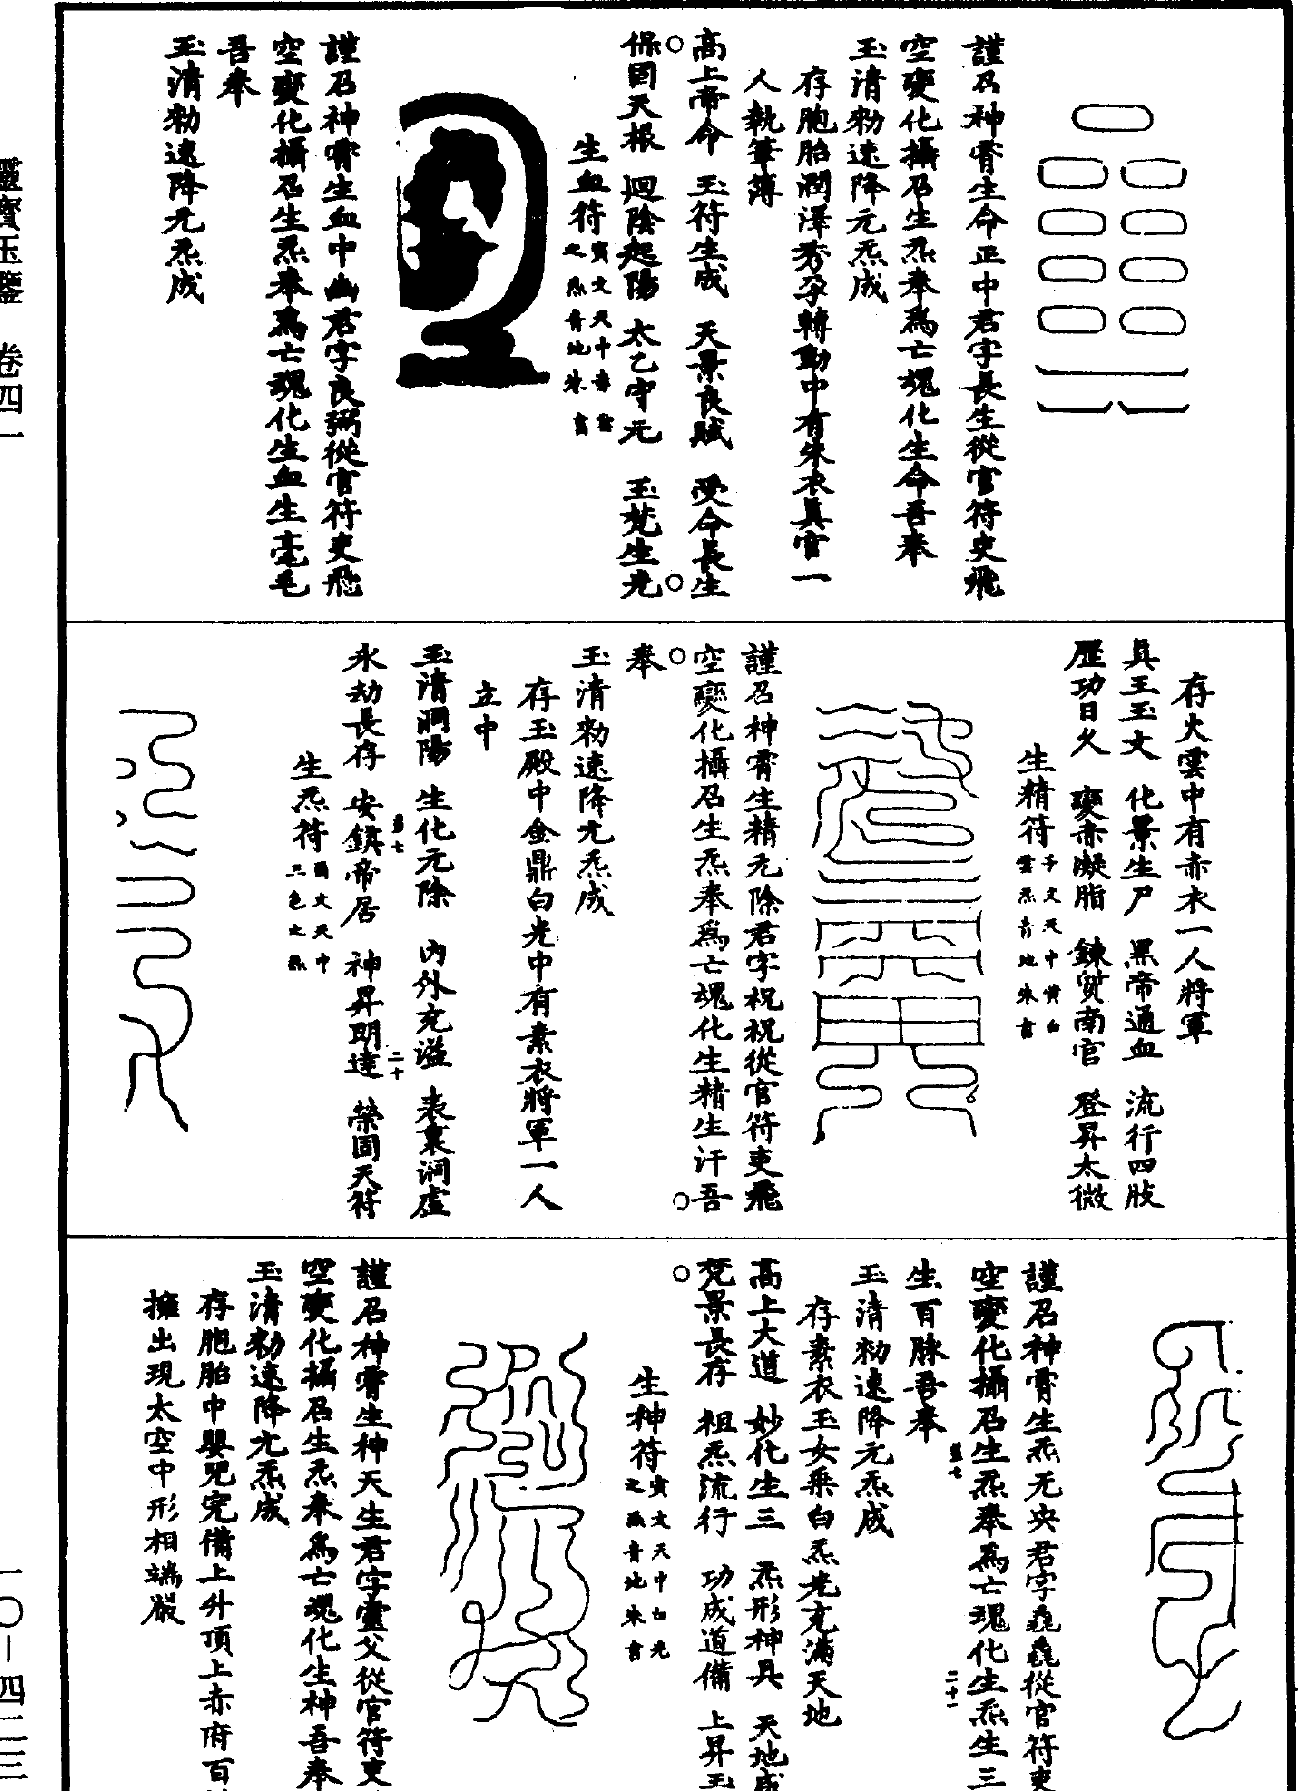 謹召神霄生命正中君字長生從官符吏飛
空變化攝召生炁奉為亡魂化生命吾奉
玉清勑速降元炁成
存胞胎潤澤秀孕轉動中有朱衣真官一
人執筆簿
高上帝命 玉符生成 天景良賦 受命長生
保固天根 迴陰起陽 太乙守元 玉梵生光
生血符
謹召神霄生血中幽君字良弼從官符吏飛
空變化攝召生炁奉為亡魂化生血生毫毛
吾奉
玉清勑速降元炁成
存火雲中有赤衣一人將軍
真王玉文 化景生尸 黑帝通血 流行四肢
歷功日久 變赤凝脂 鍊質南宮 登昇太微
生精符
謹召神霄生精元除君字祝祝從官符吏飛
空變化攝召生炁奉為亡魂化生精生汗吾
奉
玉清勑速降元炁成
存玉殿中金鼎白光中有素衣將軍一人
立中
玉清洞陽 生化元除 內外充溢 表裏洞虛
永劫長存 安鎮帝居 神昇明達 榮固天符
生炁符
謹召神霄生炁无央君字毳毳從官符吏
空變化攝召生炁奉為亡魂化生炁生三
生百脉吾奉
玉清勑速降元炁成
存素衣玉女乘白炁光充滿天地
高上大道 妙化生三 炁形神具 天地成
梵景長存 祖炁流行 功成道備 上昇玉
生神符
謹召神霄生神天生君字靈父從官符吏
空變化攝召生炁奉為亡魂化生神吾奉
玉清勑速降元炁成
存胞胎中嬰兒完備上升頂上赤府百
擁出現太空中形相端嚴
靈寶玉鑒 卷四一
一〇—四二三